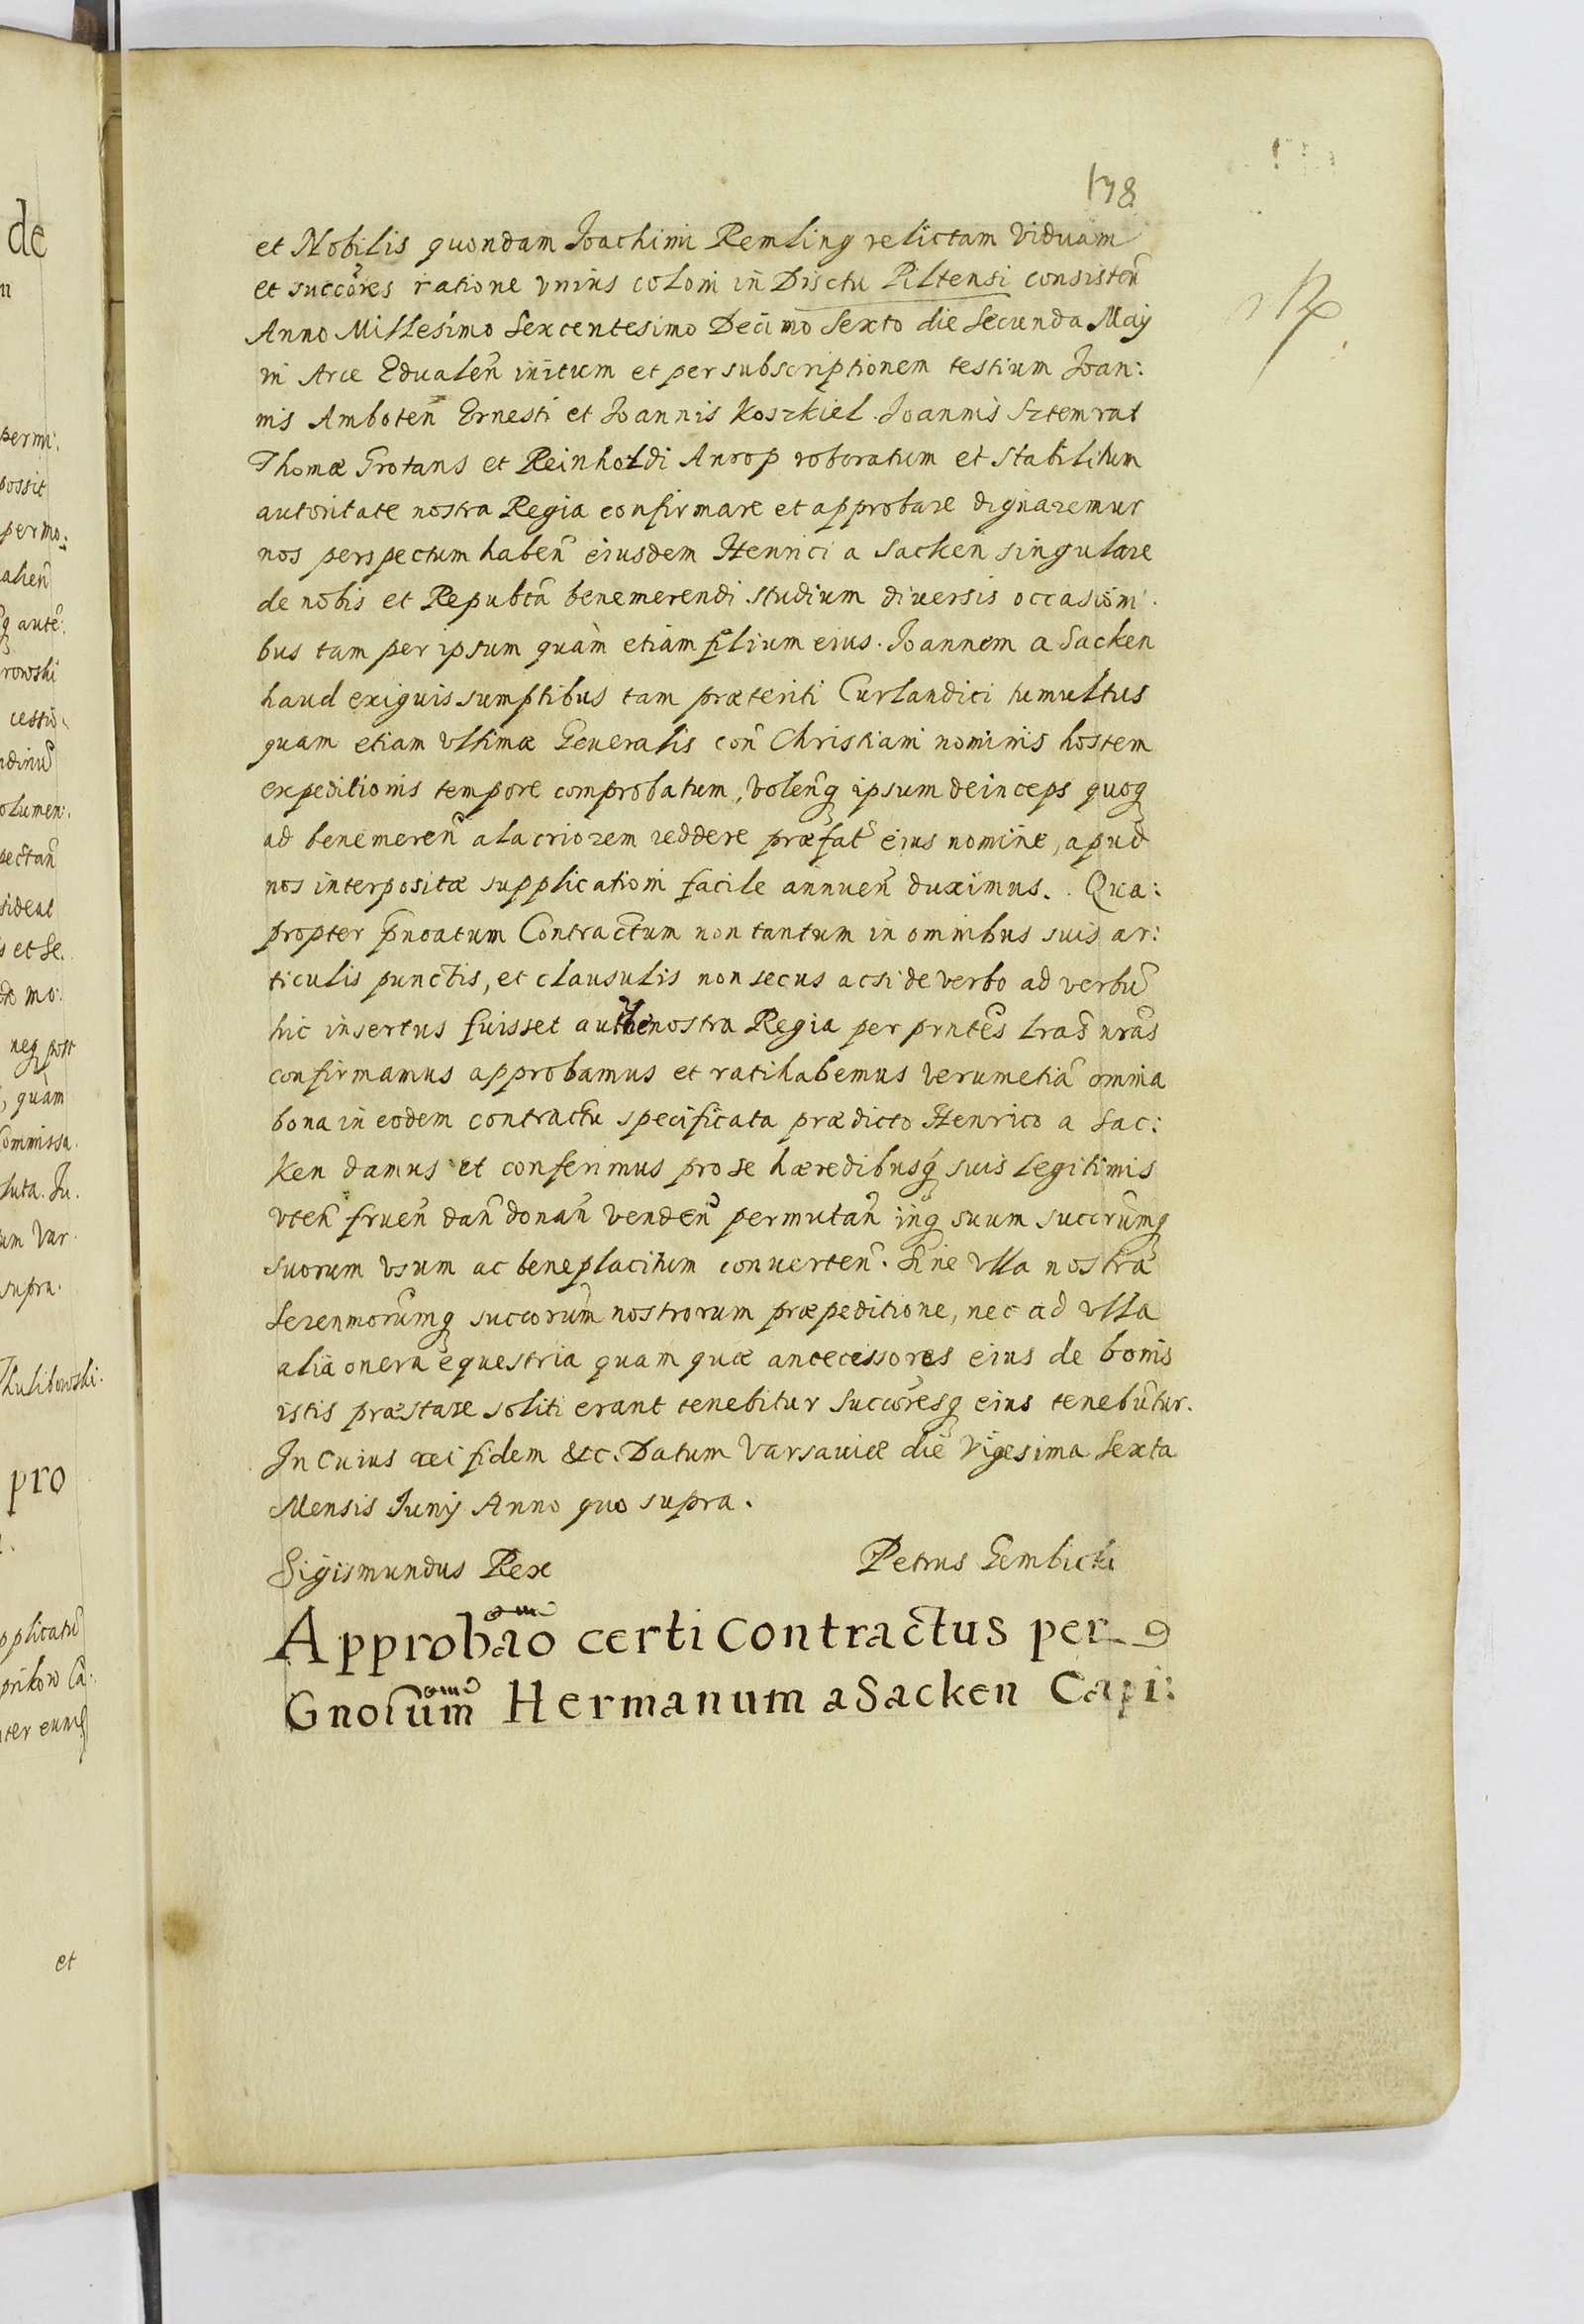 178
et Nobilis quondam Joachimi Remling relictam Viduam
et succôres ratione vnius coloni in Disctu Piltensi consisteñ
Anno Millesimo Sexcentesimo Decimo Sexto die Secunda Maij
in Arce Edualeñ initum et per subscriptionem testium Joan:
nis Amboteñ Ernesti et Joannis Koszkiel. Joannis Sztemrat
Thomæ Grotans et Reinholdi Anrop roboratum et stabilitum
autoritate nostra Regia confirmare et approbare dignaremur
nos perspectum habeñ eiusdem Henrici a Sacken singulare
de nobis et Republĉa benemerendi studium diuersis occasioni
bus tam per ipsum quàm etiam filium eius. Joannem a Sacken
haud exiguis sumptibus tam præteriti Curlandici tumultus
quam etiam vltimæ Generalis coñ Christiani nominis hostem
expeditionis tempore comprobatum, voleñq ipsum deinceps quoq
ad benemereñ alacriorem reddere præfat̃ eius nomine, apud
nos interpositæ supplicationi facile annueñ duximus. Qua:
propter p̃noatum Contractum non tantum in omnibus suis ar:
ticulis punctis, et clausulis non secus acsi de verbo ad verbũ
hic insertus fuisset authẽ nostra Regia per prñtes lr̃as nr̃as
confirmamus approbamus et ratihabemus verumetiã omnia
bona in eodem contractu specificata prædicto Henrico a Sac:
ken damus et conferimus pro se hæredibusq́ suis legitimis
vteñ frueñ dañ donañ vendeñ permutañ inq suum succrũmq
suorum vsum ac beneplacitum conuerteñ. Sine vlla nostra
Serenmorũmq succorũm nostrorum præpeditione, nec ad vlla
alia onera equestria quam quæ antecessores eius de bonis
istis præstare soliti erant tenebitur succôresq eius tenebũtur.
In Cuius rei fidem &c. Datum Varsauiæ die Vigesima Sexta
Mensis Junij Anno quo supra.
Sigismundus Rex Petrus Gembicki
Approbão certi contractus per
Gnosum Hermanum a Sacken Capi: